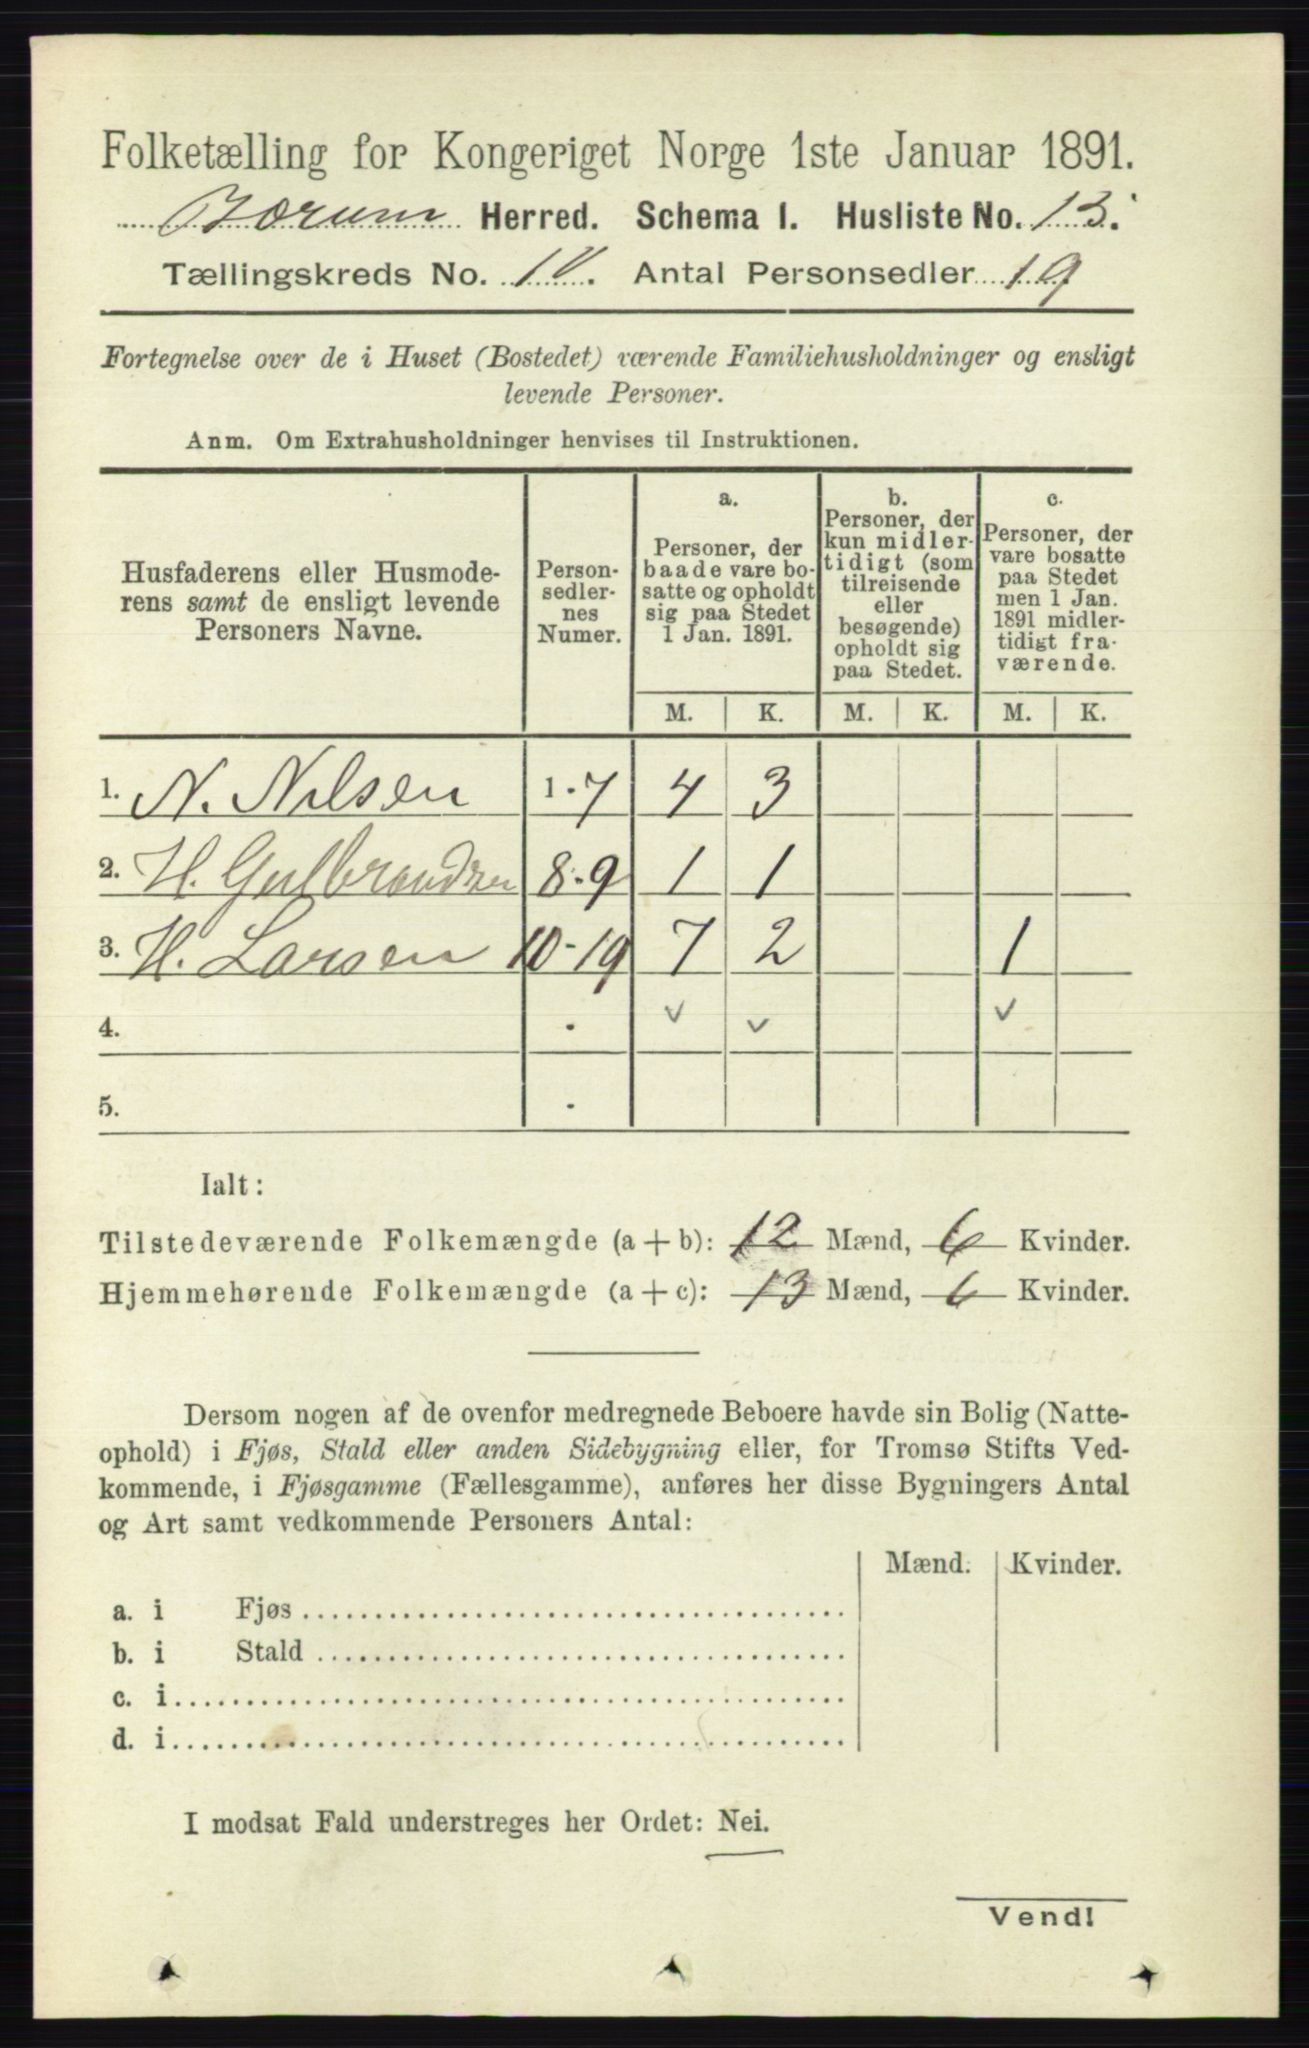 Folketælling for Kongeriget Norge 1ste Januar 1891.
Bærum Herred. Schema I. Husliste No. 13.
Tællingskreds No. Antal Personsedler 19
Fortegnelse over de i Huset (Bostedet) værende Familiehusholdninger og ensligt
levende Personer.
Anm. Om Extrahusholdninger henvises til Instruktionen.
Husfaderens eller Husmode-
rens samt de ensligt levende
Personers Navne.
Person-
sedler-
nes
Numer.
a.
Personer, der
baade vare bo-
satte og opholdt
sig paa Stedet
1 Jan. 1891.
b.
Personer, der
kun midler-
tidigt (som
tilreisende
eller
besøgende)
opholdt sig
paa Stedet.
c.
Personer, der
vare bosatte
paa Stedet
men 1 Jan.
1891 midler-
tidigt fra-
værende.
M. K. M. K. M. K.
1. N. Nilsen 1-7 4 3
2. H. Gulbrandsen 8-9 1 1
3. H. Larsen 10-19 7 2 1
4. .
5. .
Ialt:
Tilstedeværende Folkemængde (a + b): 12 Mænd, 6 Kvinder.
Hjemmehørende Folkemængde (a + c): 13 Mænd, 6 Kvinder.
Dersom nogen af de ovenfor medregnede Beboere havde sin Bolig (Natte-
ophold) i Fjøs, Stald eller anden Sidebygning eller, for Tromsø Stifts Ved-
kommende, i Fjøsgamme (Fællesgamme), anføres her disse Bygningers Antal
og Art samt vedkommende Personers Antal:
Mænd. Kvinder.
a. i Fjøs
b. i Stald
c. i
d. i
I modsat Fald understreges her Ordet: Nei.
Vend!